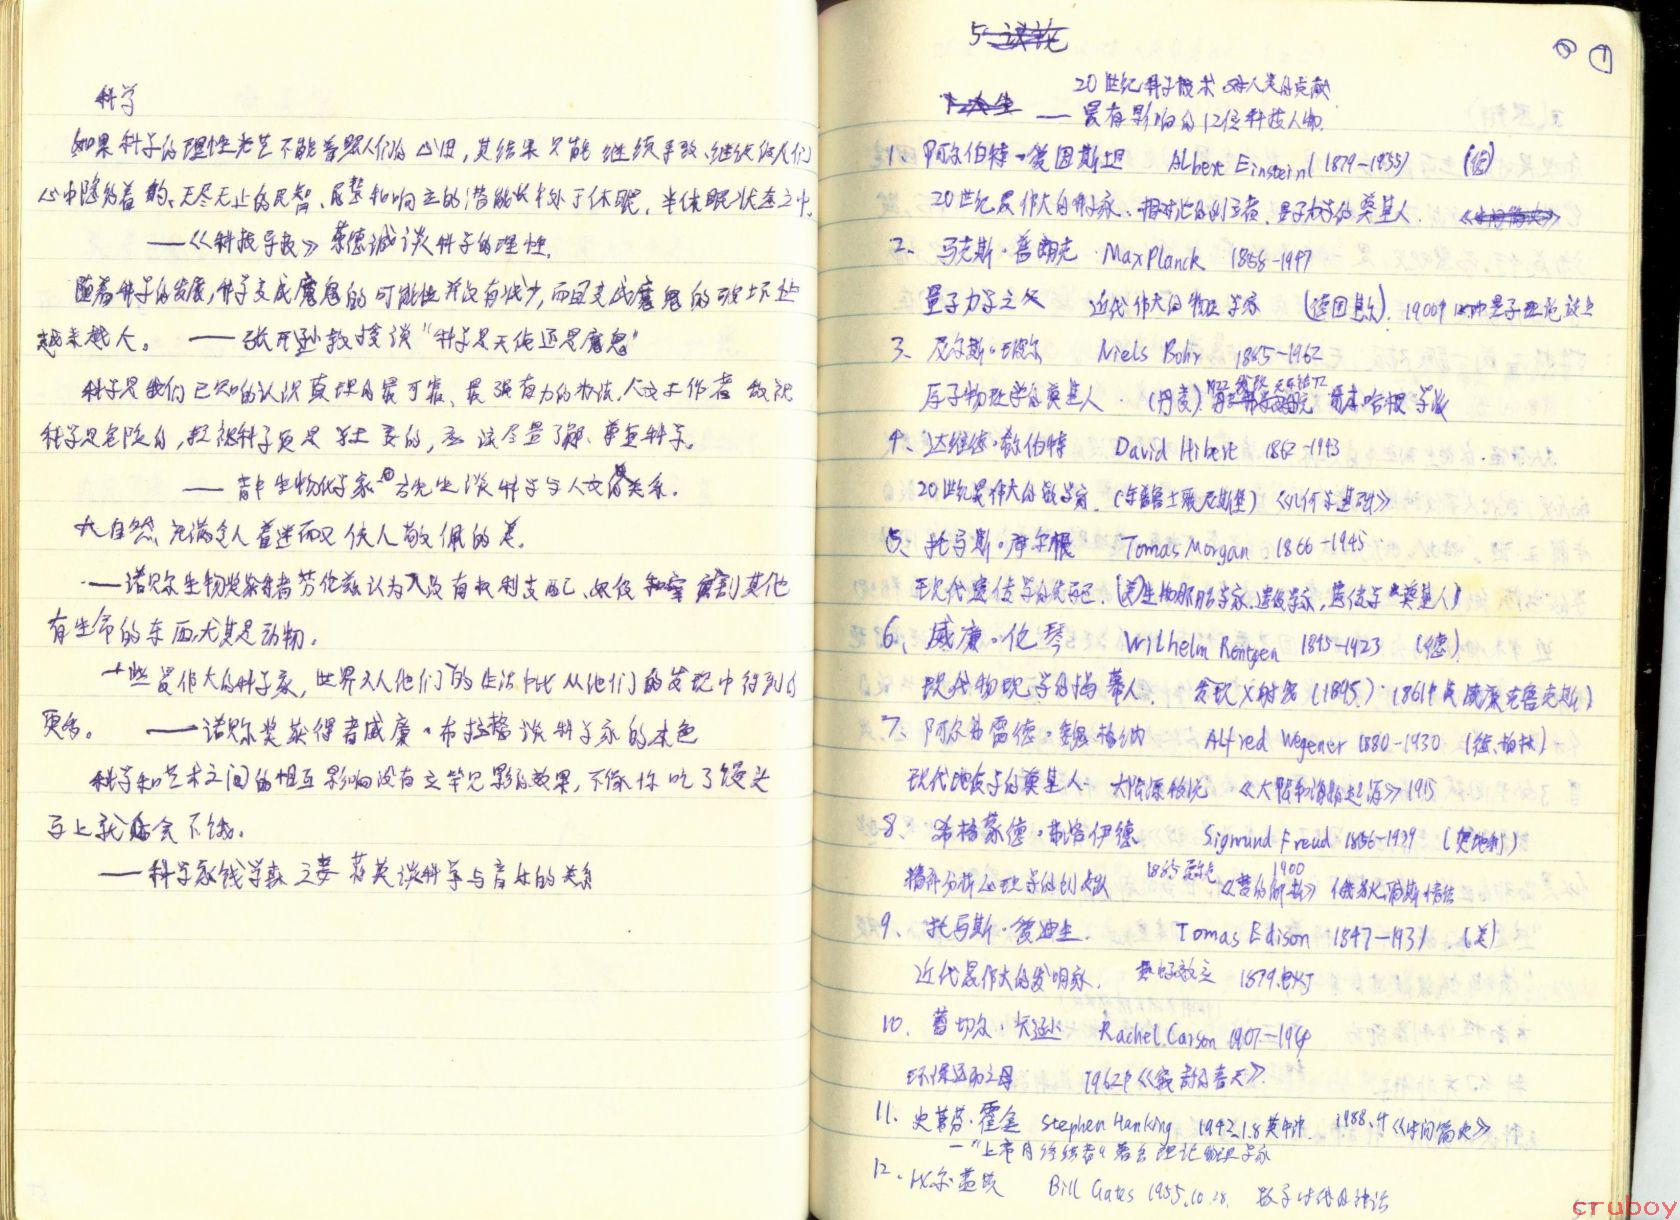 科学
如果科学的理性光芒不能普照人们的心田，其结果只能继续导致、继续使人们
心中隐约着的、无尽无止的民智、屈基和响立的潜能长年处于休眠，半休眠状态之中。
——《科技导报》蔡德诚谈科学的理性.
随着科学的发展，科学变成魔鬼的可能性并没有减少，而且变成魔鬼的破坏性
越来越大。 ——张开逊教授谈“科学是天使还是魔鬼”
科学是我们已知的认识真理的最可靠、最强有力的办法，人文工作者敌视
科学是危险的，轻视科学更是 要的，应该尽量了解、尊重科学。
——著 生物化学家 先生谈科学与人文的关系.
大自然充满令人着迷而又使人敬佩的美.
——诺贝尔生物奖获得者劳伦兹认为人没有权利支配、奴役和宰割其他
有生命的东西，尤其是动物.
一些最伟大的科学家，世界从他们的生活中比从他们的发现中得到的
更多。 ——诺贝尔奖获得者威廉·布拉格谈科学家的本色
科学和艺术之间的相互影响没有立竿见影的效果，不像你吃了馒头
马上就会不饿.
——科学家钱学森之妻蒋英谈科学与音乐的关系
5.
20世纪科学技术对人类的贡献
——最有影响的12位科技人物.
1、阿尔伯特·爱因斯坦 Albert Einstein(1879-1955) (德)
20世纪最伟大的科学家、相对论的创立者、量子力学的奠基人. 《时间简史》
2、马克斯·普朗克 Max Planck 1858-1947
量子力学之父 近代伟大的物理学家 (德国 ). 1900年 量子理论诞生
3、尼尔斯·玻尔 Niels Bohr 1885-1962
原子物理学的奠基人. (丹麦) 1922 哥本哈根学派
4、达维德·希伯特 David Hibert 1862-1943
20世纪最伟大的数学家. (东普鲁士 尼斯堡)《几何学基础》
5、托马斯·摩尔根 Tomas Morgan 1866-1945
现代遗传学的先驱. (美)生物胚胎学家、遗传学家，遗传学 奠基人)
6、威廉·伦琴 Wilhelm Röntgen 1845-1923 (德)
现代物理学的揭幕人. 发现X射线(1895). (1861年
7、阿尔弗雷德·魏格纳 Alfred Wegener 1880-1930 (德、柏林)
现代地质学的奠基人. 大陆漂移说 《大陆和海陆起源》1915
8、希格蒙德·弗洛伊德 Sigmund Freud 1856-1939 (奥地利)
精神分析心理学的创始人 1900《梦的解析》俄狄浦斯情结
9、托马斯·爱迪生. Tomas Edison 1847-1931. (美)
近代最伟大的发明家. 1879.
10、蕾切尔·卡逊 Rachel Carson 1907-1964
环保运动之母 1962年《寂静的春天》.
11、史蒂芬·霍金 Stephen Hanking 1942.1.8英牛津. 1988.4《时间简史》
—“上帝的 者” 著名理论物理学家
12、比尔·盖茨 Bill Gates 1955.10.28. 数字时代的神话
cruboy